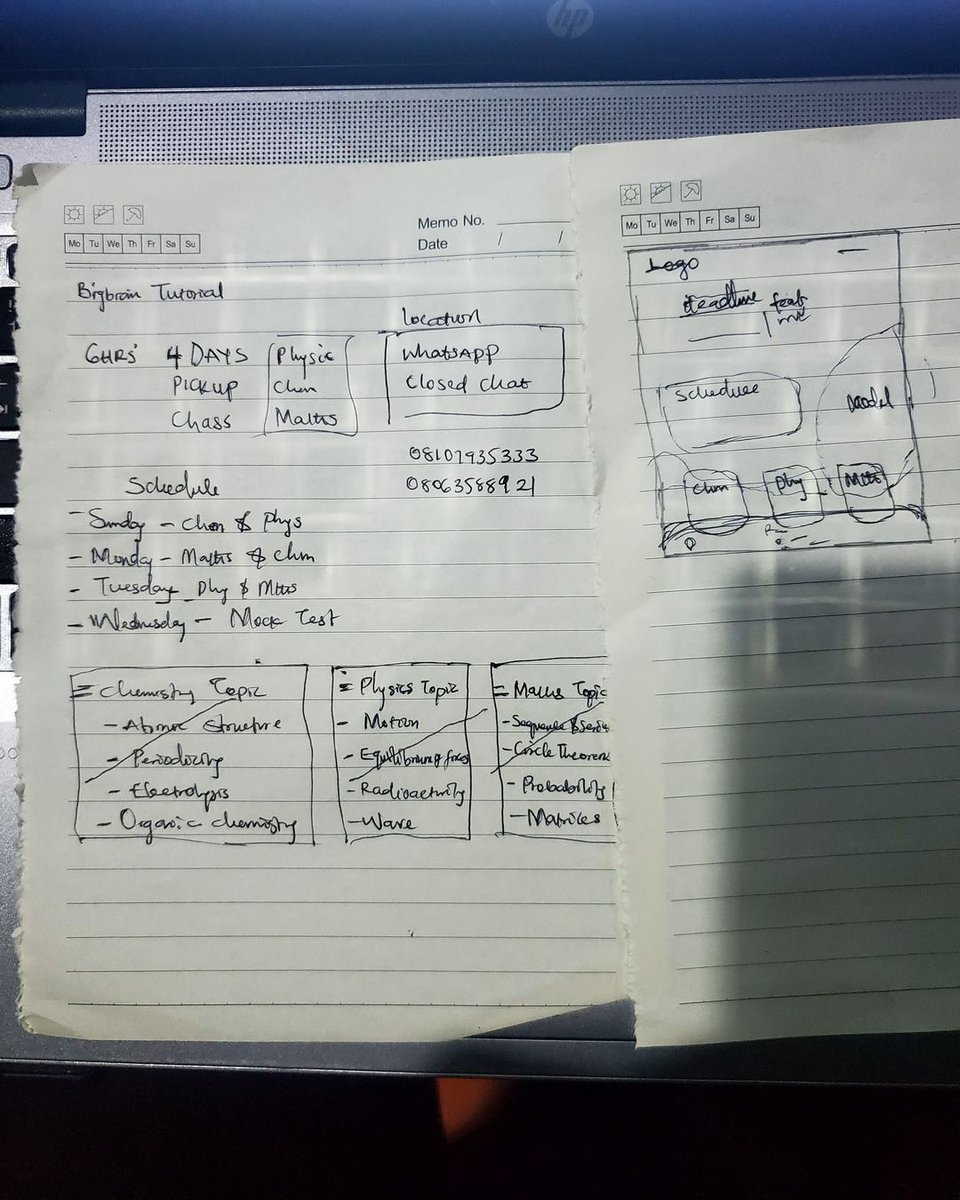 hp
Memo No.
Date / /
Mo Tu We Th Fr Sa Su
Bigbrain Tutorial
location
6HRS' 4 DAYS Physic WhatsApp
PICKUP Chem Closed Chat
Chass Maths
08107935333
08063588921
Schedule
- Sunday - Chem & Phys
- Monday - Maths & Chm
- Tuesday - Phy & Mtts
- Wednesday - Mock Test
Chemistry Topic
- Atomic Structure
- Periodicity
- Electrolysis
- Organic chemistry
Physics Topic
- Motion
- Equilibrium of
- Radioactivity
- Wave
= Maths Topic
- Sequence & Series
- Circle Theorem
- Probability
- Matrices
Mo Tu We Th Fr Sa Su
Logo
Schedule
model
Chm Phy